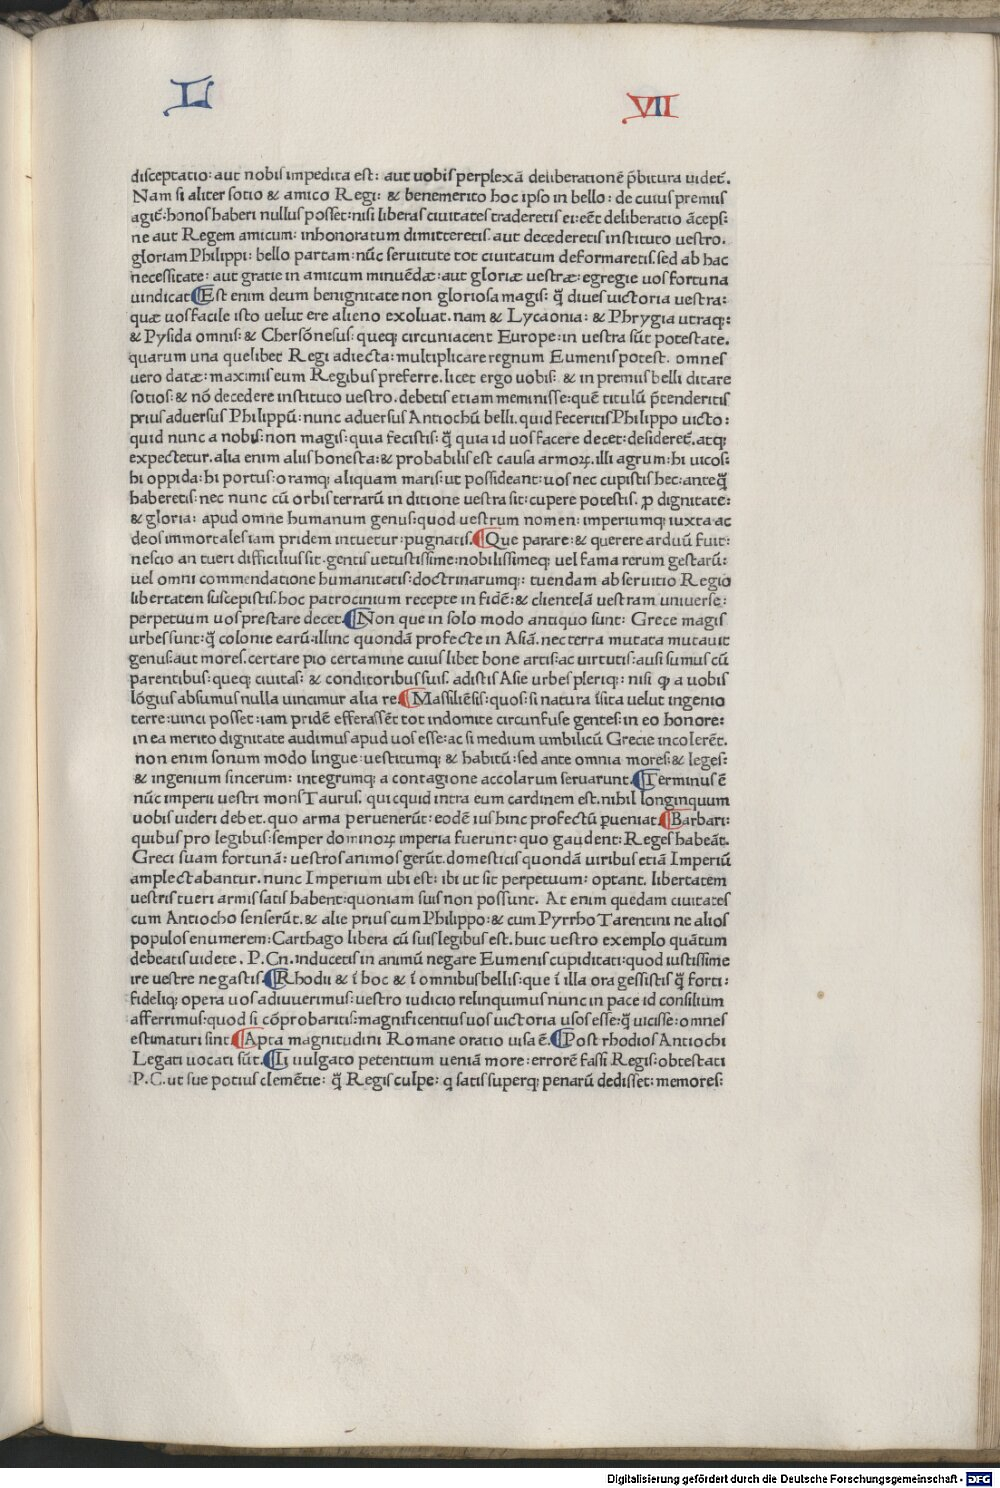 L VII
disceptatio: aut nobis impedita est: aut uobis perplexā deliberationē p̄bitura uidet̄.
Nam si aliter sotio & amico Regi: & benemerito hoc ipso in bello: de cuius premiis
agit̄: honos haberi nullus posset: nisi liberas ciuitates traderetis ei: eēt deliberatio āceps:
ne aut Regem amicum: inhonoratum dimitteretis. aut decederetis instituto uestro.
gloriam Philippi: bello partam: nūc seruitute tot ciuitatum deformaretis. sed ab hac
necessitate: aut gratie in amicum minuēdæ: aut gloriæ uestræ: egregie uos fortuna
uindicat ¶Est enim deum benignitate non gloriosa magis: q̄ diues uictoria uestra:
quæ uos facile isto uelut ere alieno exoluat. nam & Lycaonia: & Phrygia utraq;:
& Pysida omnis: & Chersōnesus: queq; circuniacent Europe: in uestra sūt potestate.
quarum una quelibet Regi adiecta: multiplicare regnum Eumenis potest. omnes
uero datæ: maximis eum Regibus preferre. licet ergo uobis: & in premiis belli ditare
sotios: & nō decedere instituto uestro. debetis etiam meminisse: quē titulū p̄tenderitis
prius aduersus Philippū: nunc aduersus Antiochū belli. quid feceritis Philippo uicto:
quid nunc a nobis: non magis: quia fecistis: q̄ quia id uos facere decet: desideret̄. atq;
expectetur. alia enim aliis honesta: & probabilis est causa armoꝝ. illi agrum: hi uicos:
hi oppida: hi portus: oramq; aliquam maris: ut possideant: uos nec cupistis hec: anteq̄
haberetis: nec nunc cū orbis terrarū in ditione uestra sit: cupere potestis. ꝓ dignitate:
& gloria: apud omne humanum genus: quod uestrum nomen: imperiumq; iuxta ac
deos immortales iam pridem intuetur: pugnatis. ¶Que parare: & querere arduū fuit:
nescio an tueri difficilius sit. gentis uetustissime: nobilissimeq; uel fama rerum gestarū:
uel omni commendatione humanitatis: doctrinarumq;: tuendam ab seruitio Regio
libertatem suscepistis. hoc patrocinium recepte in fidē: & clientelā uestram uniuerse:
perpetuum uos prestare decet. ¶Non que in solo modo antiquo sunt: Grece magis
urbes sunt: q̄ colonie earū: illinc quondā profecte in Asiā. nec terra mutata mutauit
genus: aut mores. certare pio certamine cuius libet bone artis: ac uirtutis: ausi sumus cū
parentibus: queq; ciuitas: & conditoribus suis. adistis Asie urbes pleriq;: nisi ꝙ a uobis
lōgius absumus nulla uincimur alia re ¶Massiliēsis: quos: si natura īsita uelut ingenio
terre: uinci posset: iam pridē efferassēt tot indomite circunfuse gentes: in eo honore:
in ea merito dignitate audimus apud uos esse: ac si medium umbilicū Grecie incolerēt.
non enim sonum modo lingue: uestitumq; & habitū: sed ante omnia mores: & leges:
& ingenium sincerum: integrumq; a contagione accolarum seruarunt. ¶Terminus ē
nūc imperii uestri mons Taurus. quicquid intra eum cardinem est. nihil longinquum
uobis uideri debet. quo arma peruenerūt: eodē ius hinc profectū ꝑueniat. ¶Barbari:
quibus pro legibus: semper dominoꝝ imperia fuerunt: quo gaudent: Reges habeāt.
Greci suam fortunā: uestros animos gerūt. domesticis quondā uiribus etiā Imperiū
amplectabantur. nunc Imperium ubi est: ibi ut sit perpetuum: optant. libertatem
uestris tueri armis satis habent: quoniam suis non possunt. At enim quedam ciuitates
cum Antiocho senserūt. & alie prius cum Philippo: & cum Pyrrho Tarentini ne alios
populos enumerem: Carthago libera cū suis legibus est. huic uestro exemplo quātum
debeatis uidete. P. Cn. inducetis in animū negare Eumenis cupiditati: quod iustissime
ire uestre negastis. ¶Rhodii & ī hoc & ī omnibus bellis: que ī illa ora gessistis q̄ forti:
fideliq; opera uos adiuuerimus: uestro iudicio relinquimus nunc in pace id consilium
afferrimus: quod si cōprobaritis: magnificentius uos uictoria usos esse: q̄ uicisse: omnes
estimaturi sint ¶Apta magnitudini Romane oratio uisa ē. ¶Post rhodios Antiochi
Legati uocati sūt. ¶Ii uulgato petentium ueniā more: errorē fassi Regis: obtestati
P. C. ut sue potius clemētie: q̄ Regis culpe: q satis superq; penarū dedisset: memores:
Digitalisierung gefördert durch die Deutsche Forschungsgemeinschaft - DFG